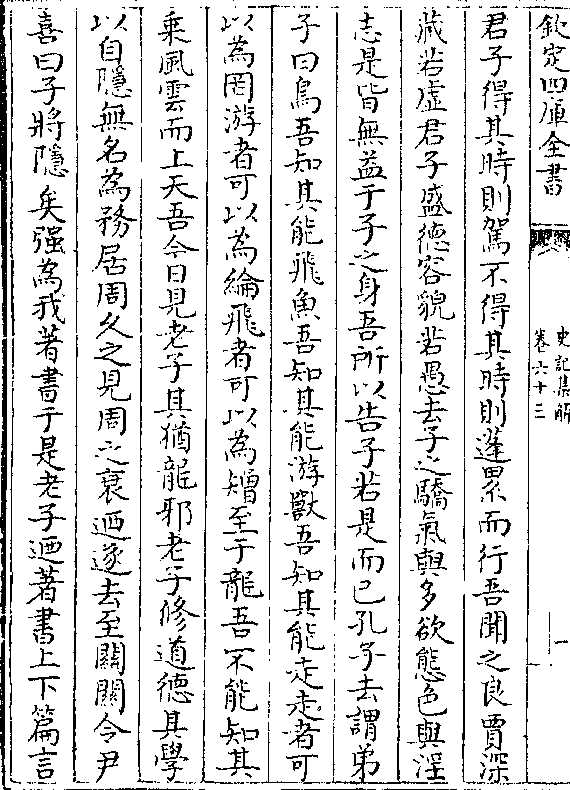 欽定四庫全書
史記集解
卷六十三
一
君子得其時則駕不得其時則蓬累而行吾聞之良賈深
藏若虛君子盛德容貌若愚去子之驕氣與多欲態色與淫
志是皆無益于子之身吾所以告子若是而已孔子去謂弟
子曰鳥吾知其能飛魚吾知其能游獸吾知其能走走者可
以為罔游者可以為綸飛者可以為矰至于龍吾不能知其
乘風雲而上天吾今日見老子其猶龍邪老子修道德其學
以自隱無名為務居周久之見周之衰迺遂去至關關令尹
喜曰子將隱矣强為我著書于是老子迺著書上下篇言